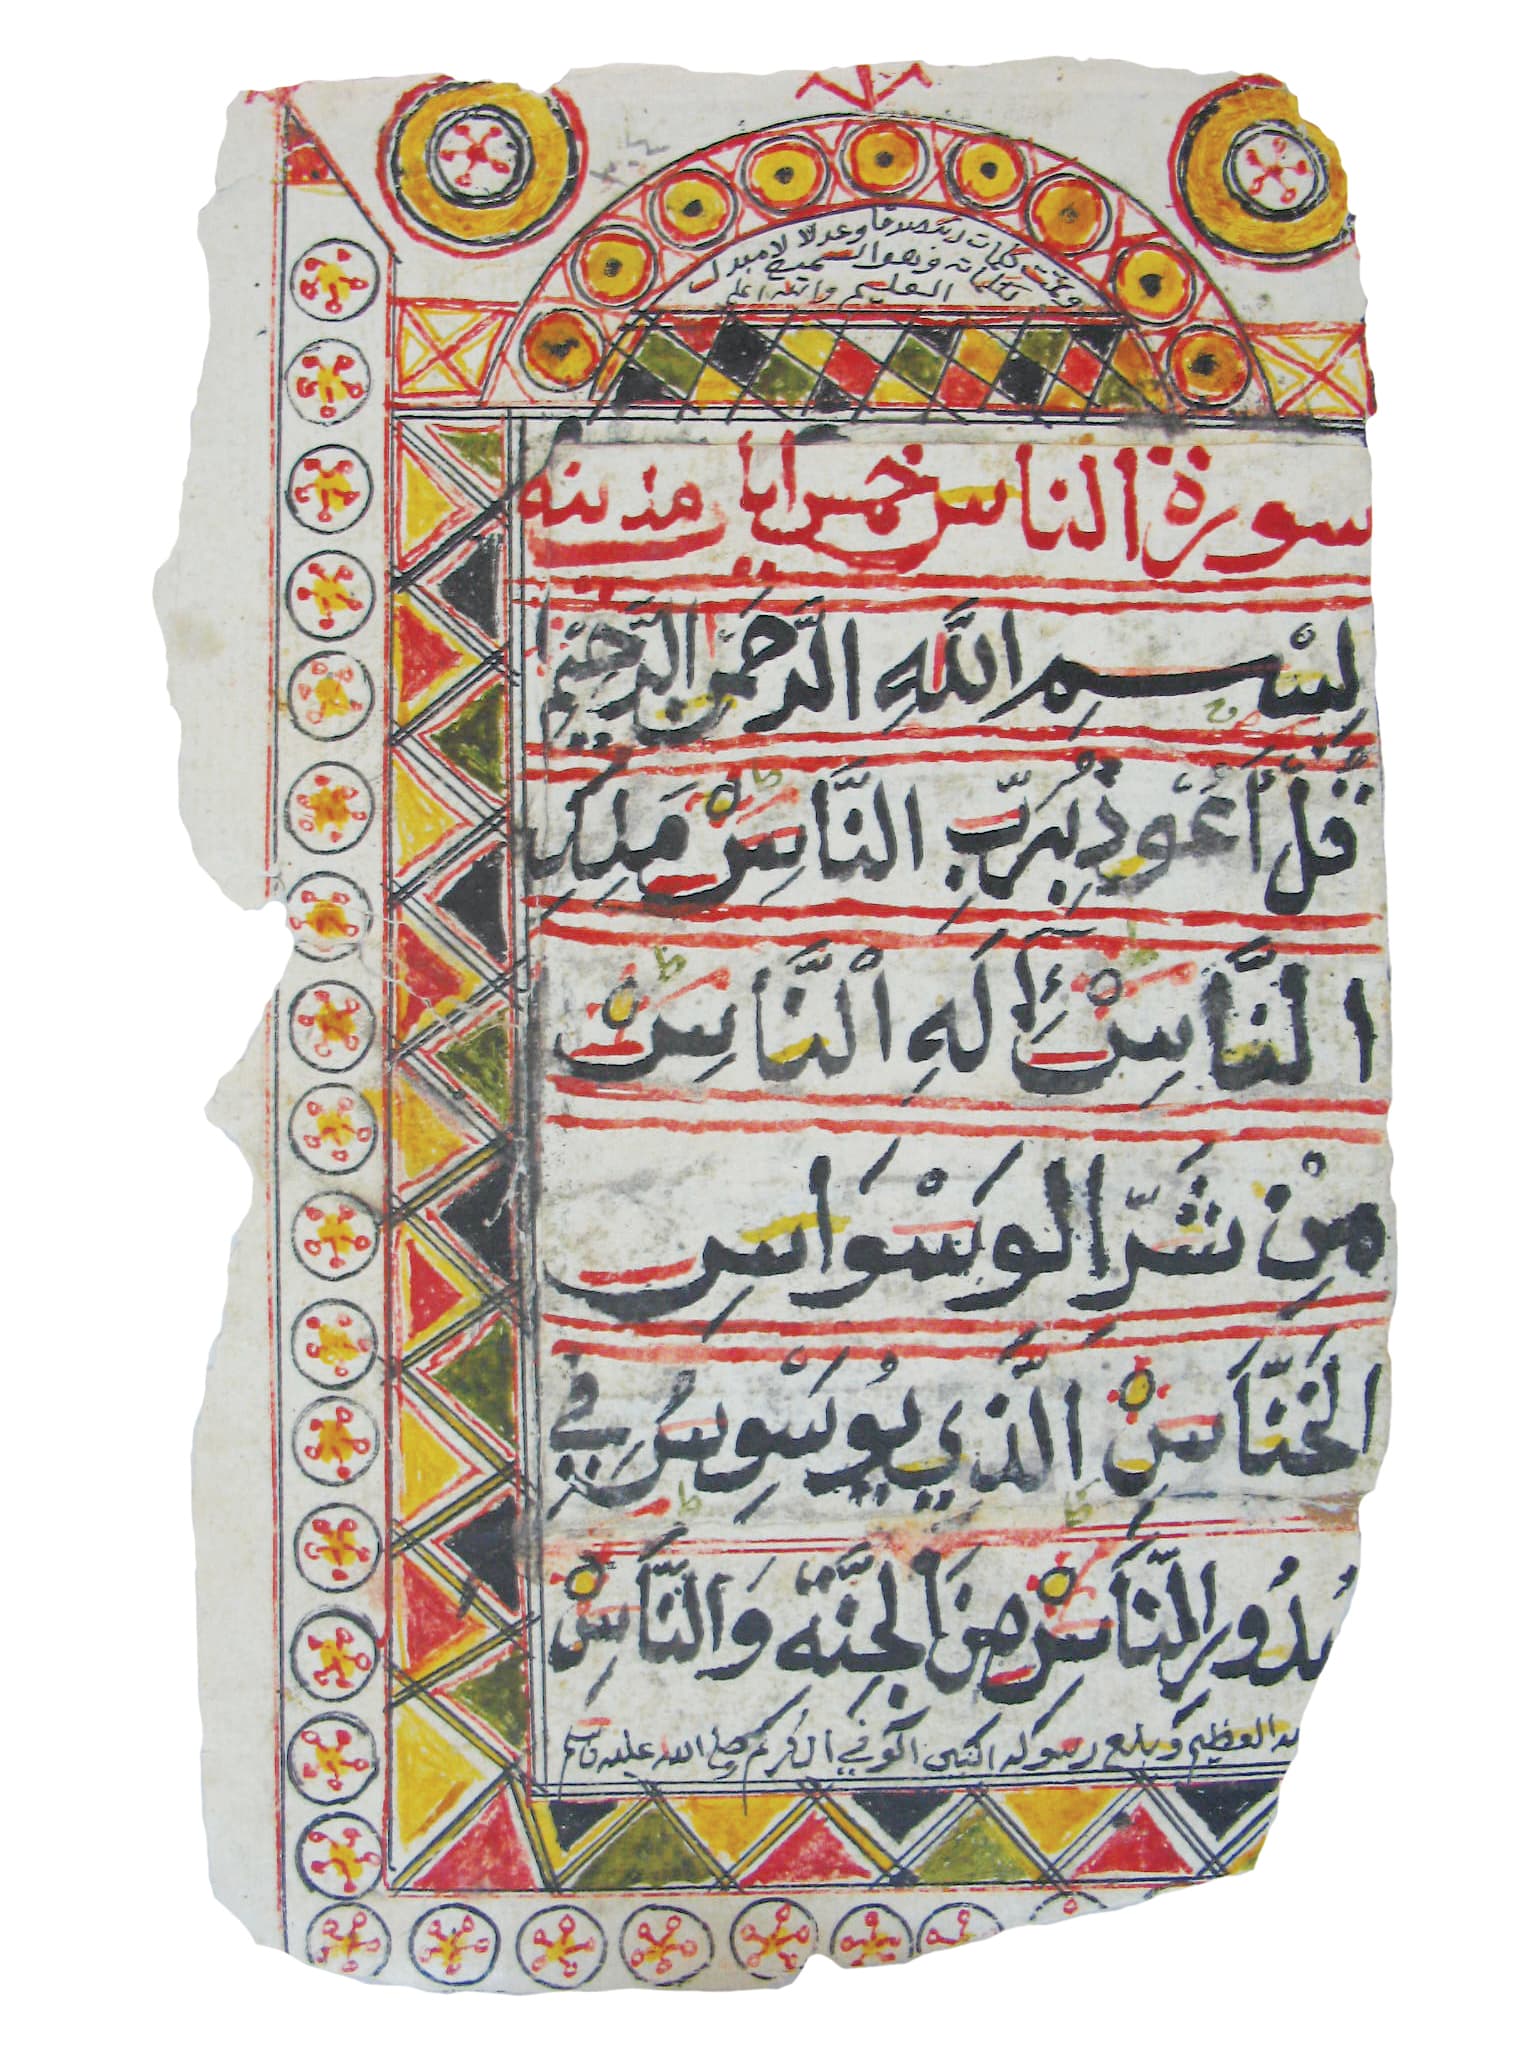 وتمت كلمات ربك صدقا وعدلا لا مبدل
لكلماته وهو السميع
العليم والله اعلم
سورة الناس خمس ايات مدنية
بِسْمِ اللَّهِ الرَّحْمَنِ الرَّحِيمِ
قُلْ أَعُوذُ بِرَبِّ النَّاسِ مَلِكِ
النَّاسِ إِلَهِ النَّاسِ
مِنْ شَرِّ الْوَسْوَاسِ
الْخَنَّاسِ الَّذِي يُوَسْوِسُ فِي
صُدُورِ النَّاسِ مِنَ الْجِنَّةِ وَالنَّاسِ
العظيم وبلغ رسوله النبي الكريم صلى الله عليه